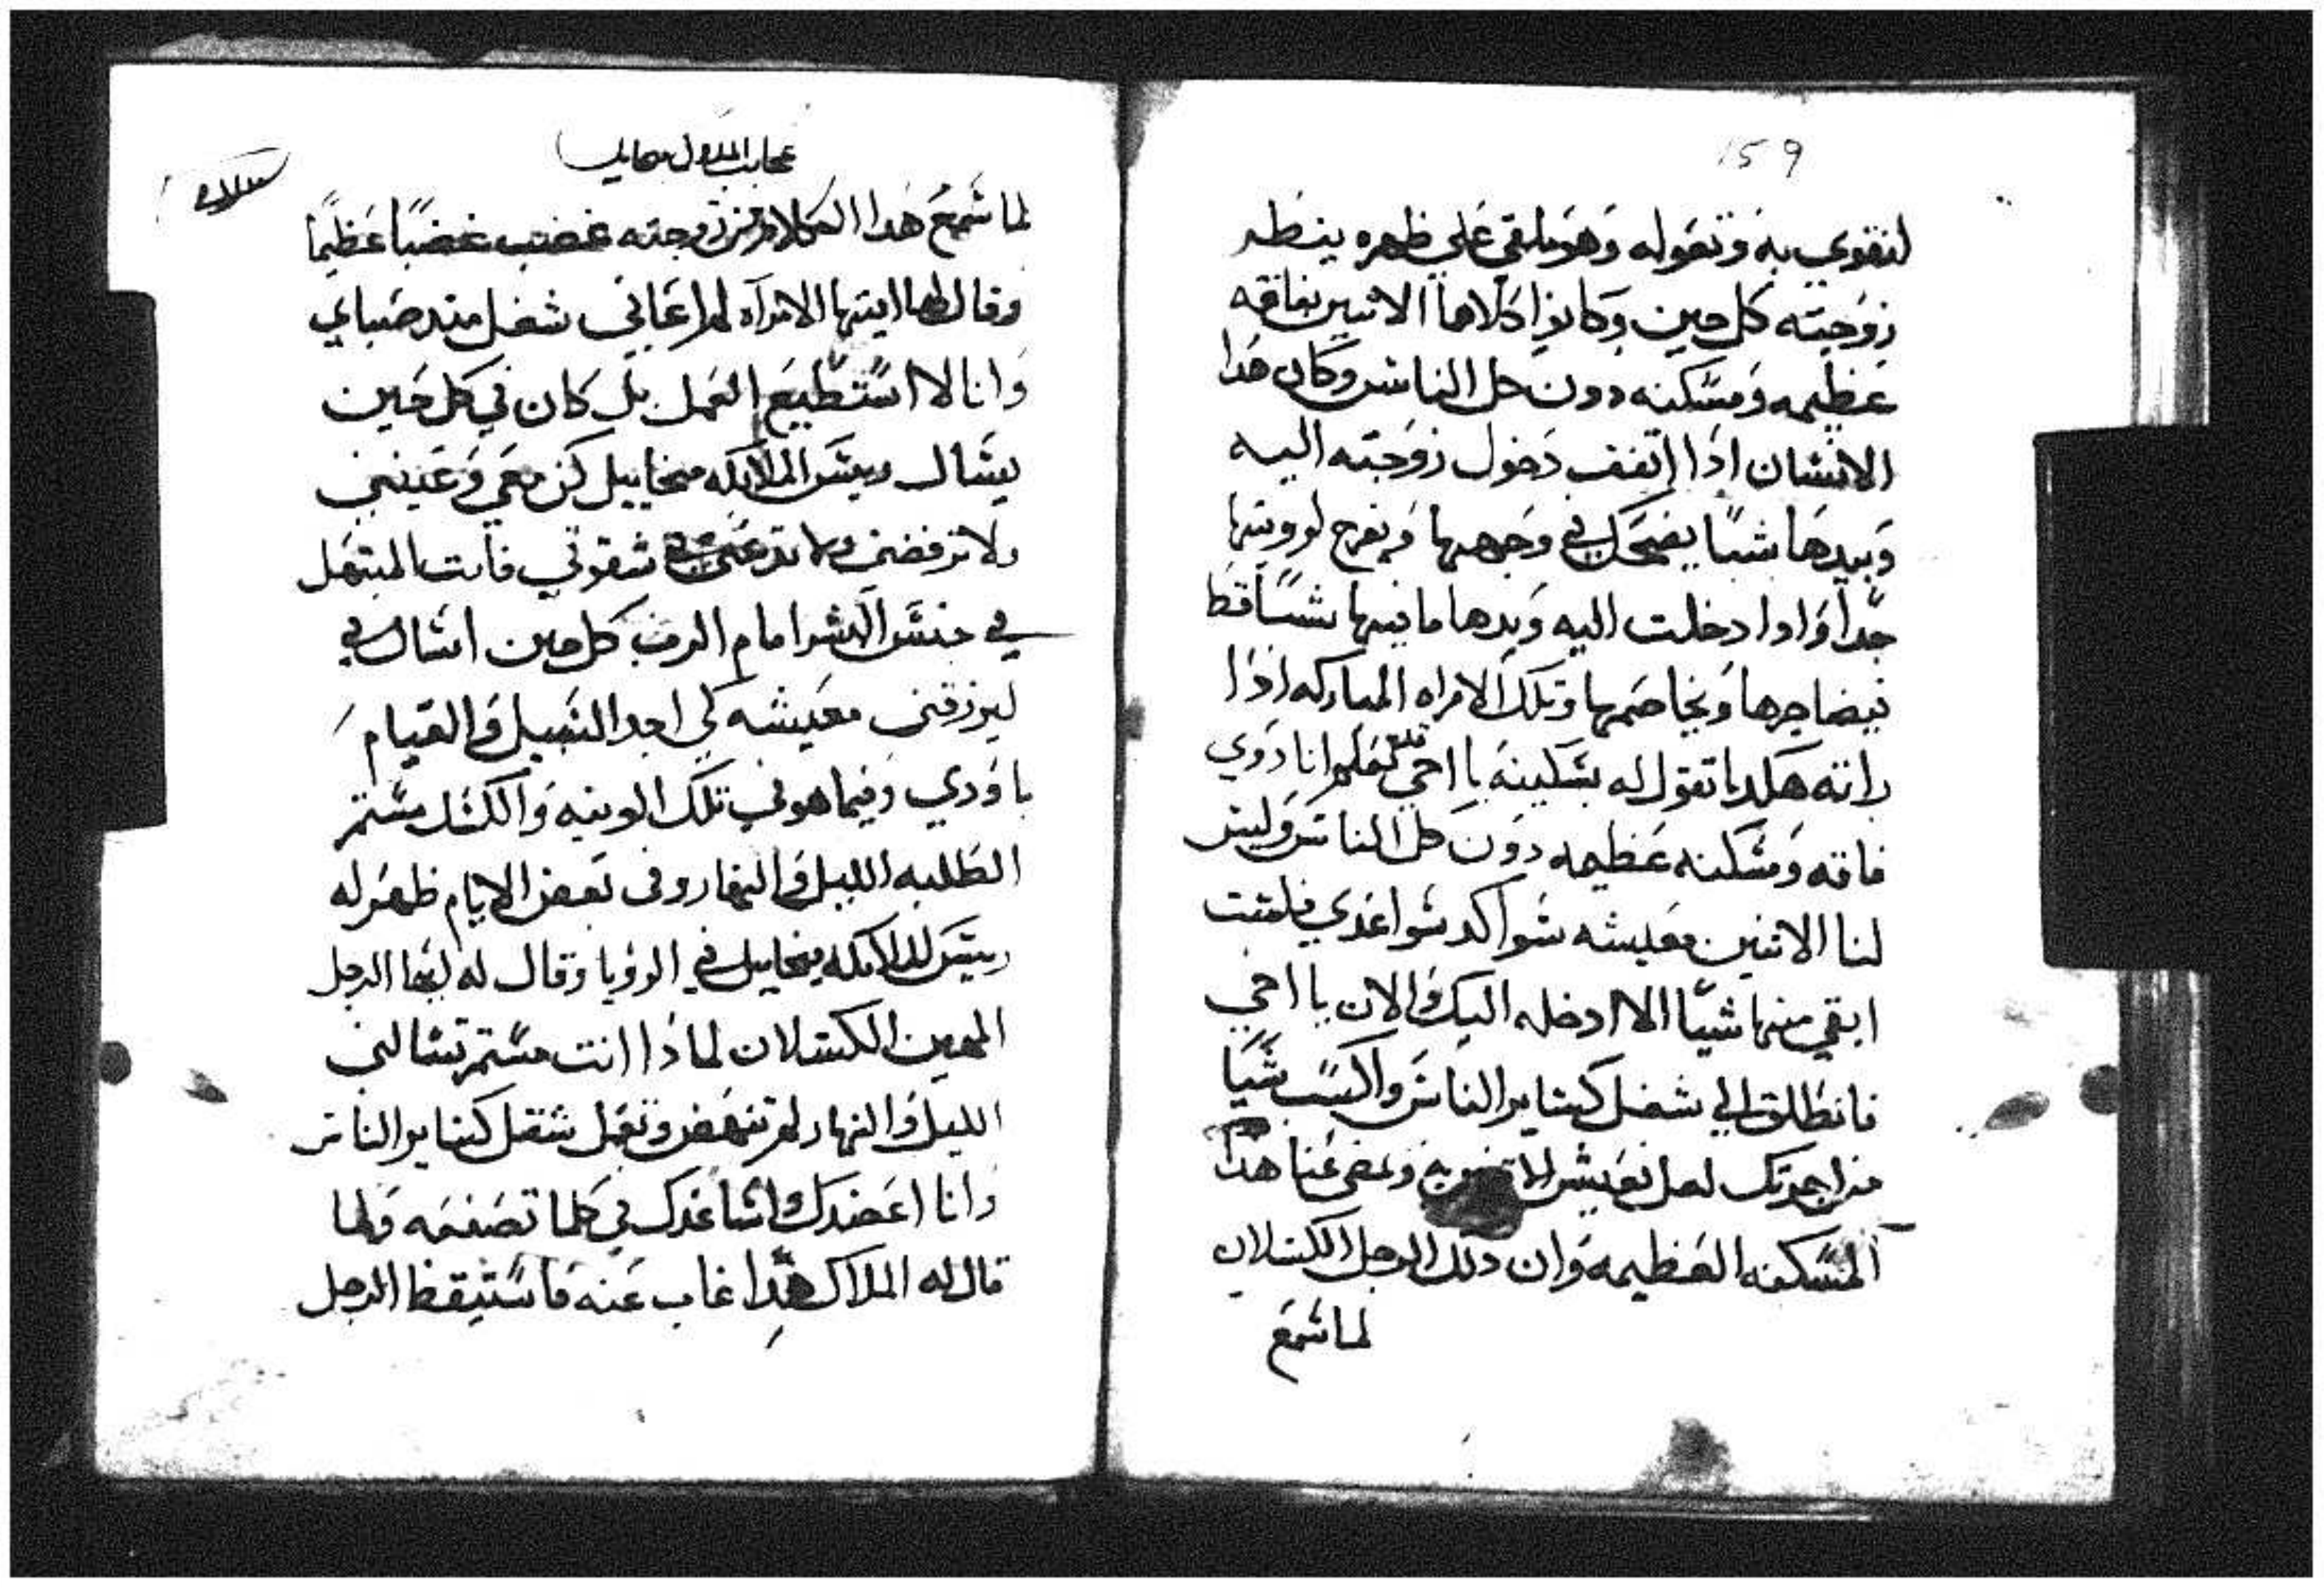 159
لتقوي به وتعوله وهو ملقي علي ظهره ينظر
زوجته كل حين وكانوا كلاهما الاثنين بفاقه
عظيمه ومسكنه دون كل الناس وكان هدا
الانسان ادا اتفف دخول زوجته اليه
وبيدها شيا يضحك في وجهها ويفرح لرويتها
جدا وادا دخلت اليه ويدها ما فيها شيا قط
فيضاجرها ويخاصمها وتلك الامراه المباركه ادا
راته هكدا تقول له بسكينه يا اخي انا دوي
فاقه ومسكنه عظيمه دون كل الناس وليس
لنا الاثنين معيشه سوا كد سواعدي فلست
ابقي منها شيا الا ادخله اليك والان يا اخي
فانطلق الي شغل كساير الناس واكسب شيا
من اجرتك لعل نعيش ويمضي عنا هدا
المسكنه العظيمه وان دلك الرجل الكسلان
لما سمع
عجايب الملاك ميخاييل
لما سمع هدا الكلام من زوجته غضب غضبا عظيما
وقال لها ايتها الامراه لم اعاني شغل مند صباي
وانا لا استطيع العمل بل كان في كل حين
يسال رييس الملايكه ميخاييل كن معي وعينني
ولا ترفضني ولا تدعني في شقوتي فانت المبتهل
في جنس البشر امام الرب كل حين اسال في
ليرزقني معيشه لكي اجد السبيل والقيام
باودي وفيما هو في تلك الونيه والكسل مستمر
الطلبه الليل والنهار وفي بعض الايام ظهر له
رييس الملايكه ميخاييل في الرويا وقال له ايها الرجل
المهين الكسلان لمادا انت مستمر تسالني
الليل والنهار لم تنهض وتعمل شغل كساير الناس
وانا اعضدك واساعدك في كلما تصنعه ولما
قال له الملاك هدا غاب عنه فاستيقظ الرجل